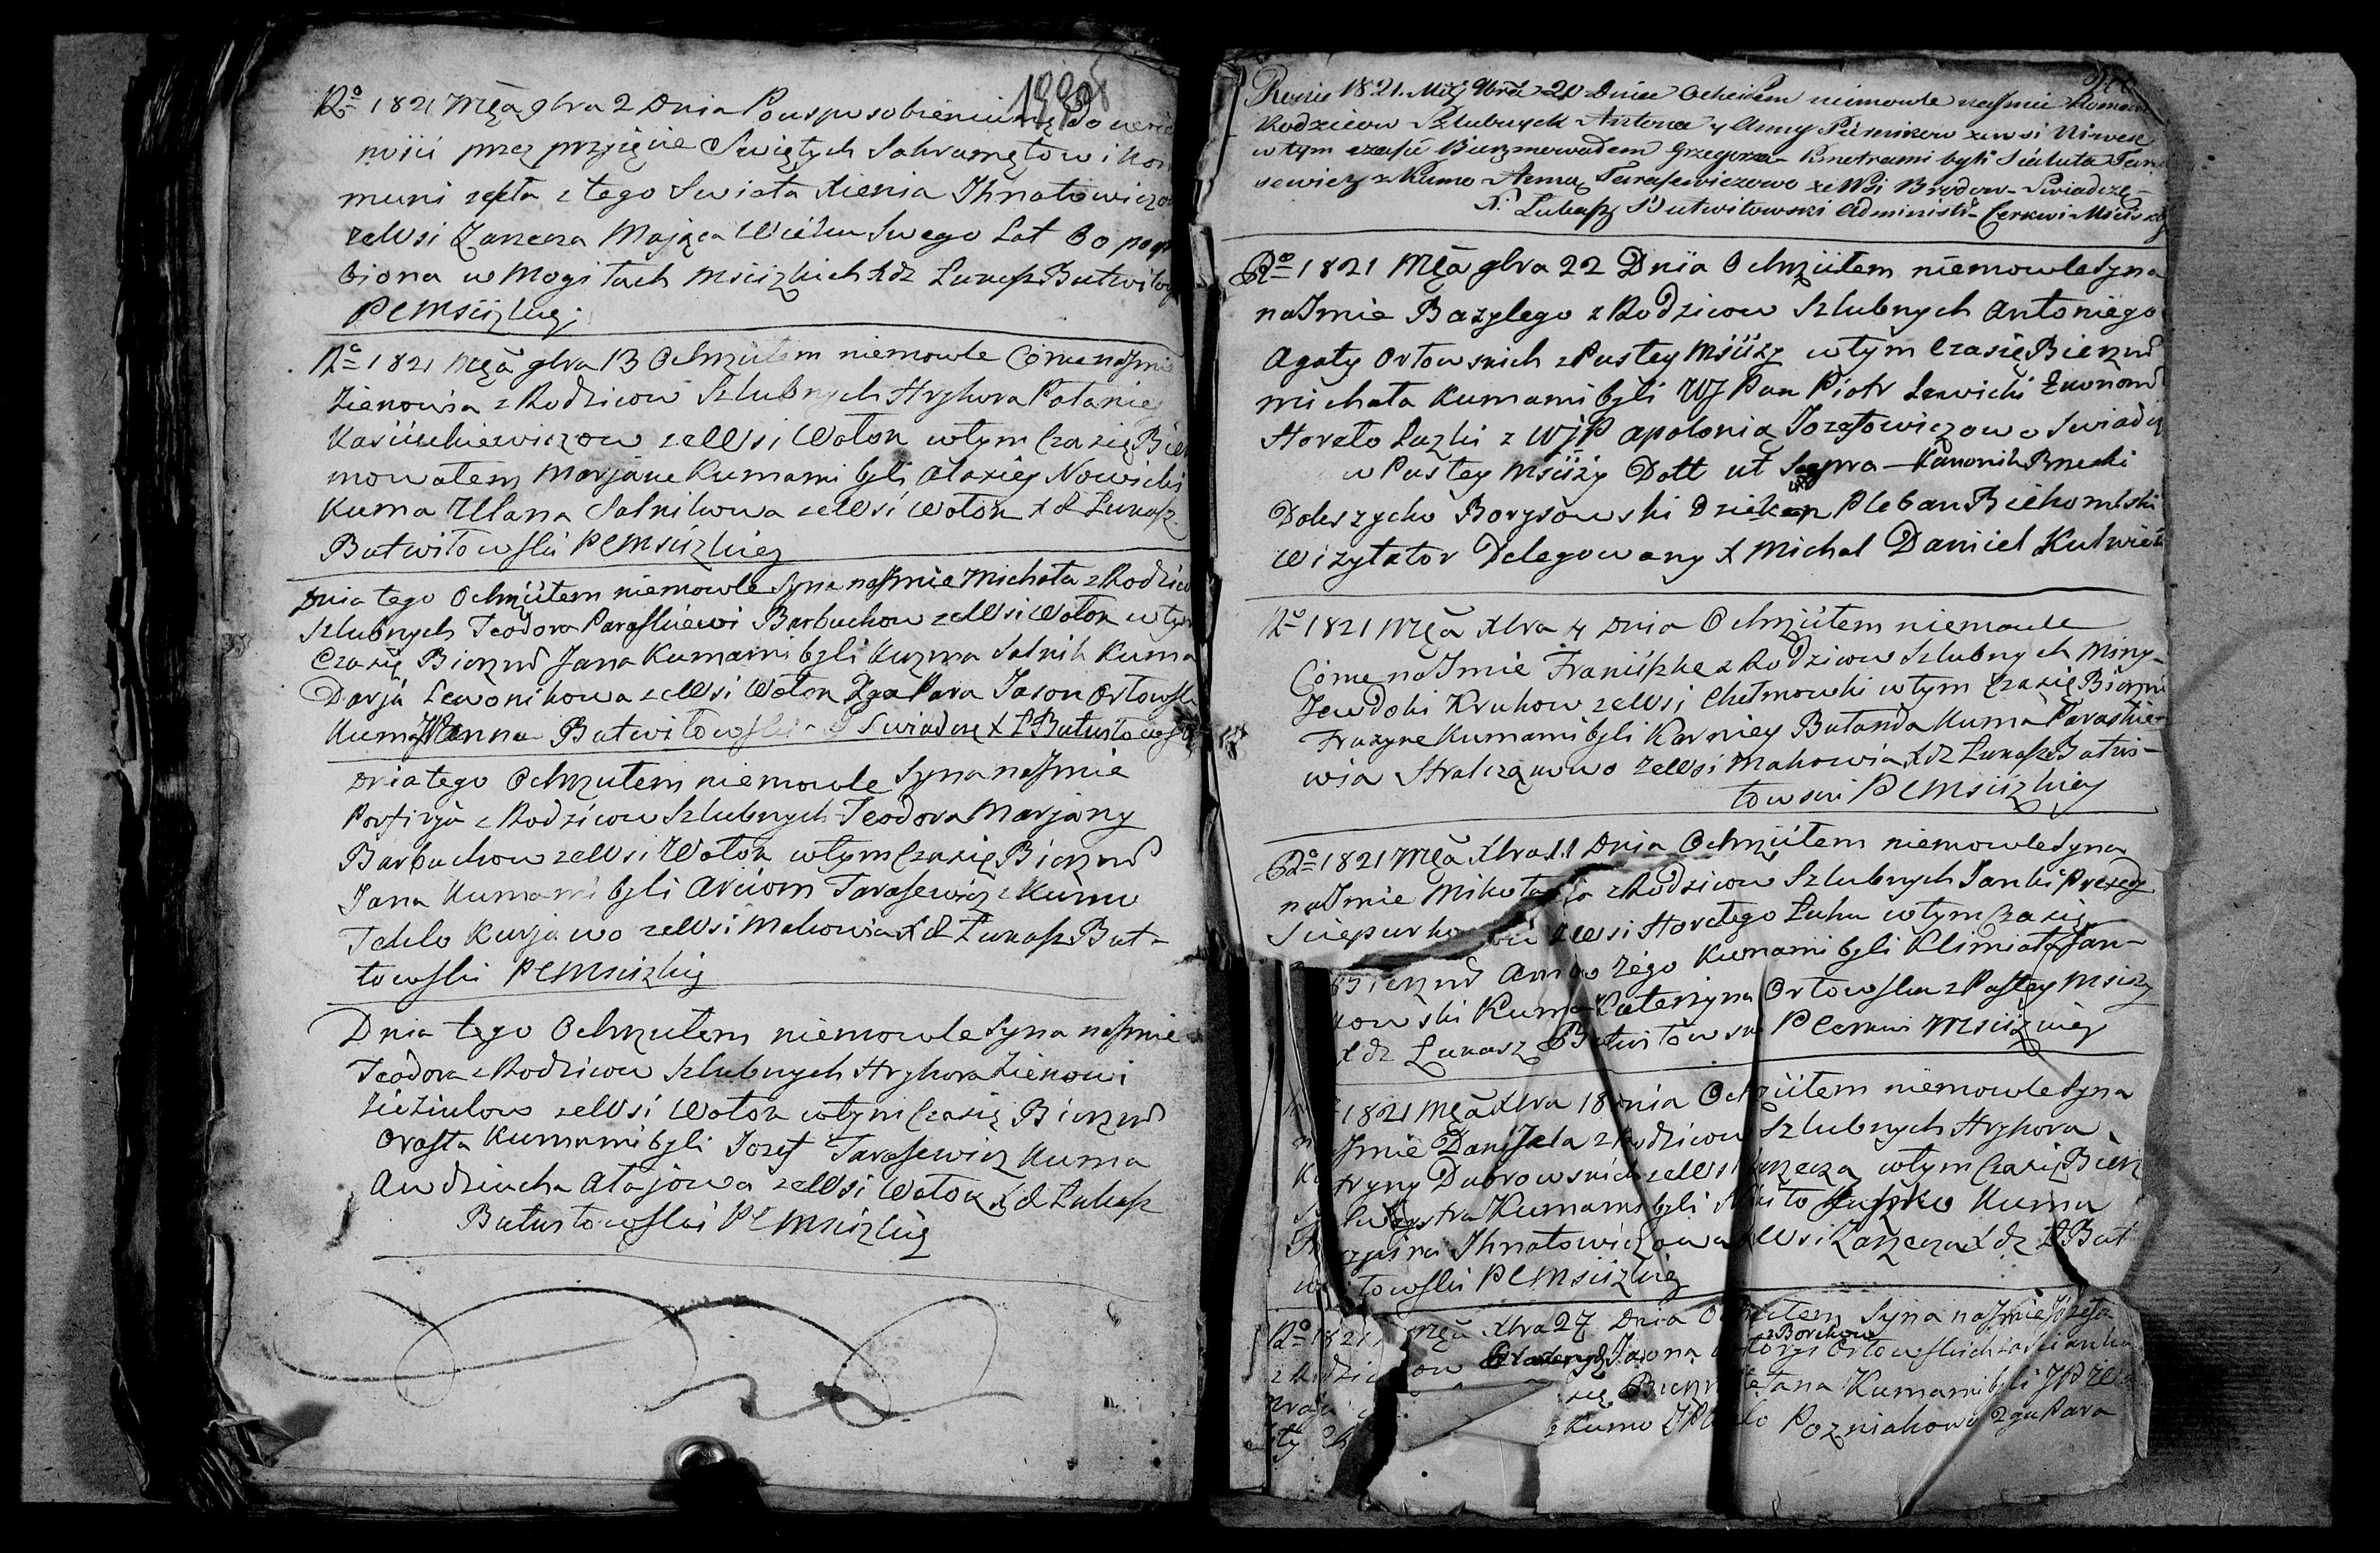 199
Rº 1821 Mca 9bra 2 Dnia Po usposobieniu się do wiecz
ności przez przyjęcie Swiętych Sakramętow i Kom
muni zeszła z tego Swiata Xienia Ihnatowiczow
ze Wsi Zarzecza Mająca Wieku Swego Lat 60 pogr
biona w Mogiłach Msciżkich Xdz Łukasz Butwiłow
P C Msciżkiej
Rº 1821 Mca 9bra 13 Ochrzciłem niemowle Córke na Jmie
Zienowia z Rodzicow Szlubnych Hryhora Pałaniej
Kaściukiewiczow ze Wsi Wołok w tym Czasię Bierz
mowałem Marjane Kumami byli Alaxiey Nowicki
Kuma Ulana Salnikowa ze Wsi Wołok X d Łukasz
Butwiłowski P C Msciżkiej
Dnia tego Ochrzciłem niemowle Syna na Jmie Michała z Rodzico
Szlubnych Teodora Paraskiewi Barbuchow ze Wsi Wołok w tym
Czasię Bierzmd Jana Kumami byli Kuzma Salnik Kuma
Darja Lewonikowa ze Wsi Wołok 2ga Para Jason Orłowski
Kuma Anna Butwiłowska Swiadczę X Ł Butwiłowski
Dnia tego Ochrzciłem niemowle Syna na Jmie
Porfirya z Rodzicow Szlubnych Teodora Marjany
Barbuchow ze Wsi Wołok w tym Czasię Bierzmd
Jana Kumami byli Arciom Tarasewicz z Kumo
Teklo Kurjawo ze Wsi Makowia X d Łukasz But-
towski P C Msciżkiej
Dnia tego Ochrzciłem niemowle Syna na Jmie
Teodora z Rodzicow Szlubnych Hryhora Zienowi
Zieziulow ze Wsi Wołok w tym Czasię Bierzmd
Orasta Kumami byli Jozef Tarasewicz Kuma
Awdziucha Ałajowa ze Wsi Wołok X d Łukasz
Butwiłowski P C Msciżkiej
200
Roku 1821. Mcą 9bra 20 Dnia Ochciłem niemowle na Jmie Romana
Rodzicow Szlubnych Antona y Anny ze wsi Niwek
w tym czasie Bierzmowałem Grzegorza Kmotrami byli Tara
sewicz z Kumo Anną Tarasewiczowo ze Wsi Brodow Swiadczę
X. Łukasz Butwiłowski Administr Cerkwi Mścisz
Rº 1821 Mcą 9bra 22 Dnia Ochrzciłem niemowle Syna
na Jmie Bazylego z Rodzicow Szlubnych Antoniego
Agaty Orłowskich z Pustey Mściży w tym Czasię Bierzmd
Michała Kumami byli WJ Pan Piotr Lewicki Ekonom
Horało Łazki z WJP Apolonią Jozefowiczowo Swiadczę
w Pustey Mściży Datt ut Supra — Kanonik Brzeski
Doleszycko Borysowski Dziekan Pleban Biehomlski
Wizytator Delegowany X Michal Daniel Kulwie
Rº 1821 Mcą Xbra 4 Dnia Ochrzciłem niemowle
Córke na Jmie Franiszke z Rodzicow Szlubnych Miny-
Jewdoki Krukow ze Wsi Chełmowki w tym Czasię Bierzm
Frazyne Kumami byli Karniey Bułanda Kuma Paraskie-
wia ze Wsi Makowia Xdz Łukasz Butwi-
łowski P C Msciżkiej
Rº 1821 Mcą Xbra 11 Dnia Ochrzciłem niemowle Syna
na Jmie Mikołaja z Rodzicow Szlubnych Janki
ze Wsi Horełego Łuhu w tym Czasię
Bierzmd Kumami byli Klimiata Jan-
kowski Kuma Katerzyna Orłowska z Pustey Msciży
Xdz Łukasz Butwiłowski P Cerkwi Msciżkiej
1821 Mcą Xbra 18 Dnia Ochrzciłem niemowle Syna
na Jmie Daniela z Rodzicow Szlubnych Hryhora
Dubrowskich ze Wsi Zarzecza w tym Czasię Bierz
Kumami byli Kuma
Ihnatowiczowa ze Wsi Zarzecza Xdz Ł But
wiłowski P C Msciżkiej
Rº 1821 Mcą Xbra 27 Dnia Ochrzciłem Syna na Jmie Jozefa
z Rodzicow Jasona Orłowskich
z Borchow
Bierzm Jana Kumami byli JP
z Kumo Pozniakowo 2ga Para